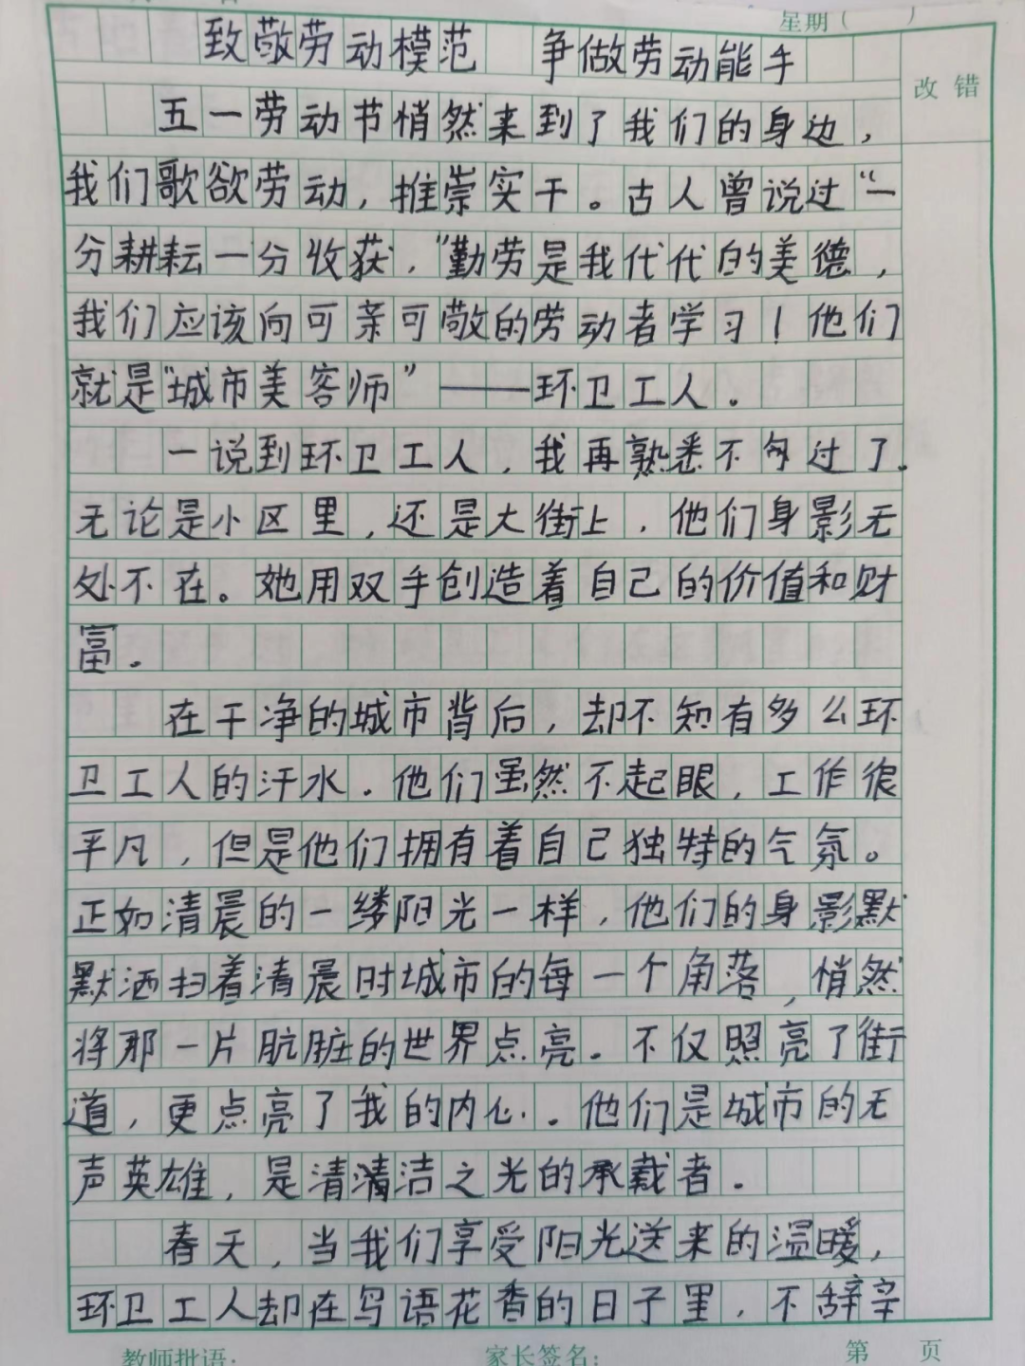 星期（ ）
致敬劳动模范 争做劳动能手
改错
五一劳动节悄然来到了我们的身边，
我们歌欲劳动，推崇实干。古人曾说过“一
分耕耘一分收获，“勤劳是我代代的美德，
我们应该向可亲可敬的劳动者学习！他们
就是“城市美容师”——环卫工人。
一说到环卫工人，我再熟悉不过了。
无论是小区里，还是大街上，他们身影无
处不在。她用双手创造着自己的价值和财
富。
在干净的城市背后，却不知有多么环
卫工人的汗水。他们虽然不起眼，工作很
平凡，但是他们拥有着自己独特的气氛。
正如清晨的一缕阳光一样，他们的身影默
默洒扫着清晨时城市的每一个角落，悄然
将那一片肮脏的世界点亮。不仅照亮了街
道，更点亮了我的内心。他们是城市的无
声英雄，是清清洁之光的承载者。
春天，当我们享受阳光送来的温暖，
环卫工人却在鸟语花香的日子里，不辞辛
教师批语： 家长签名： 第 页